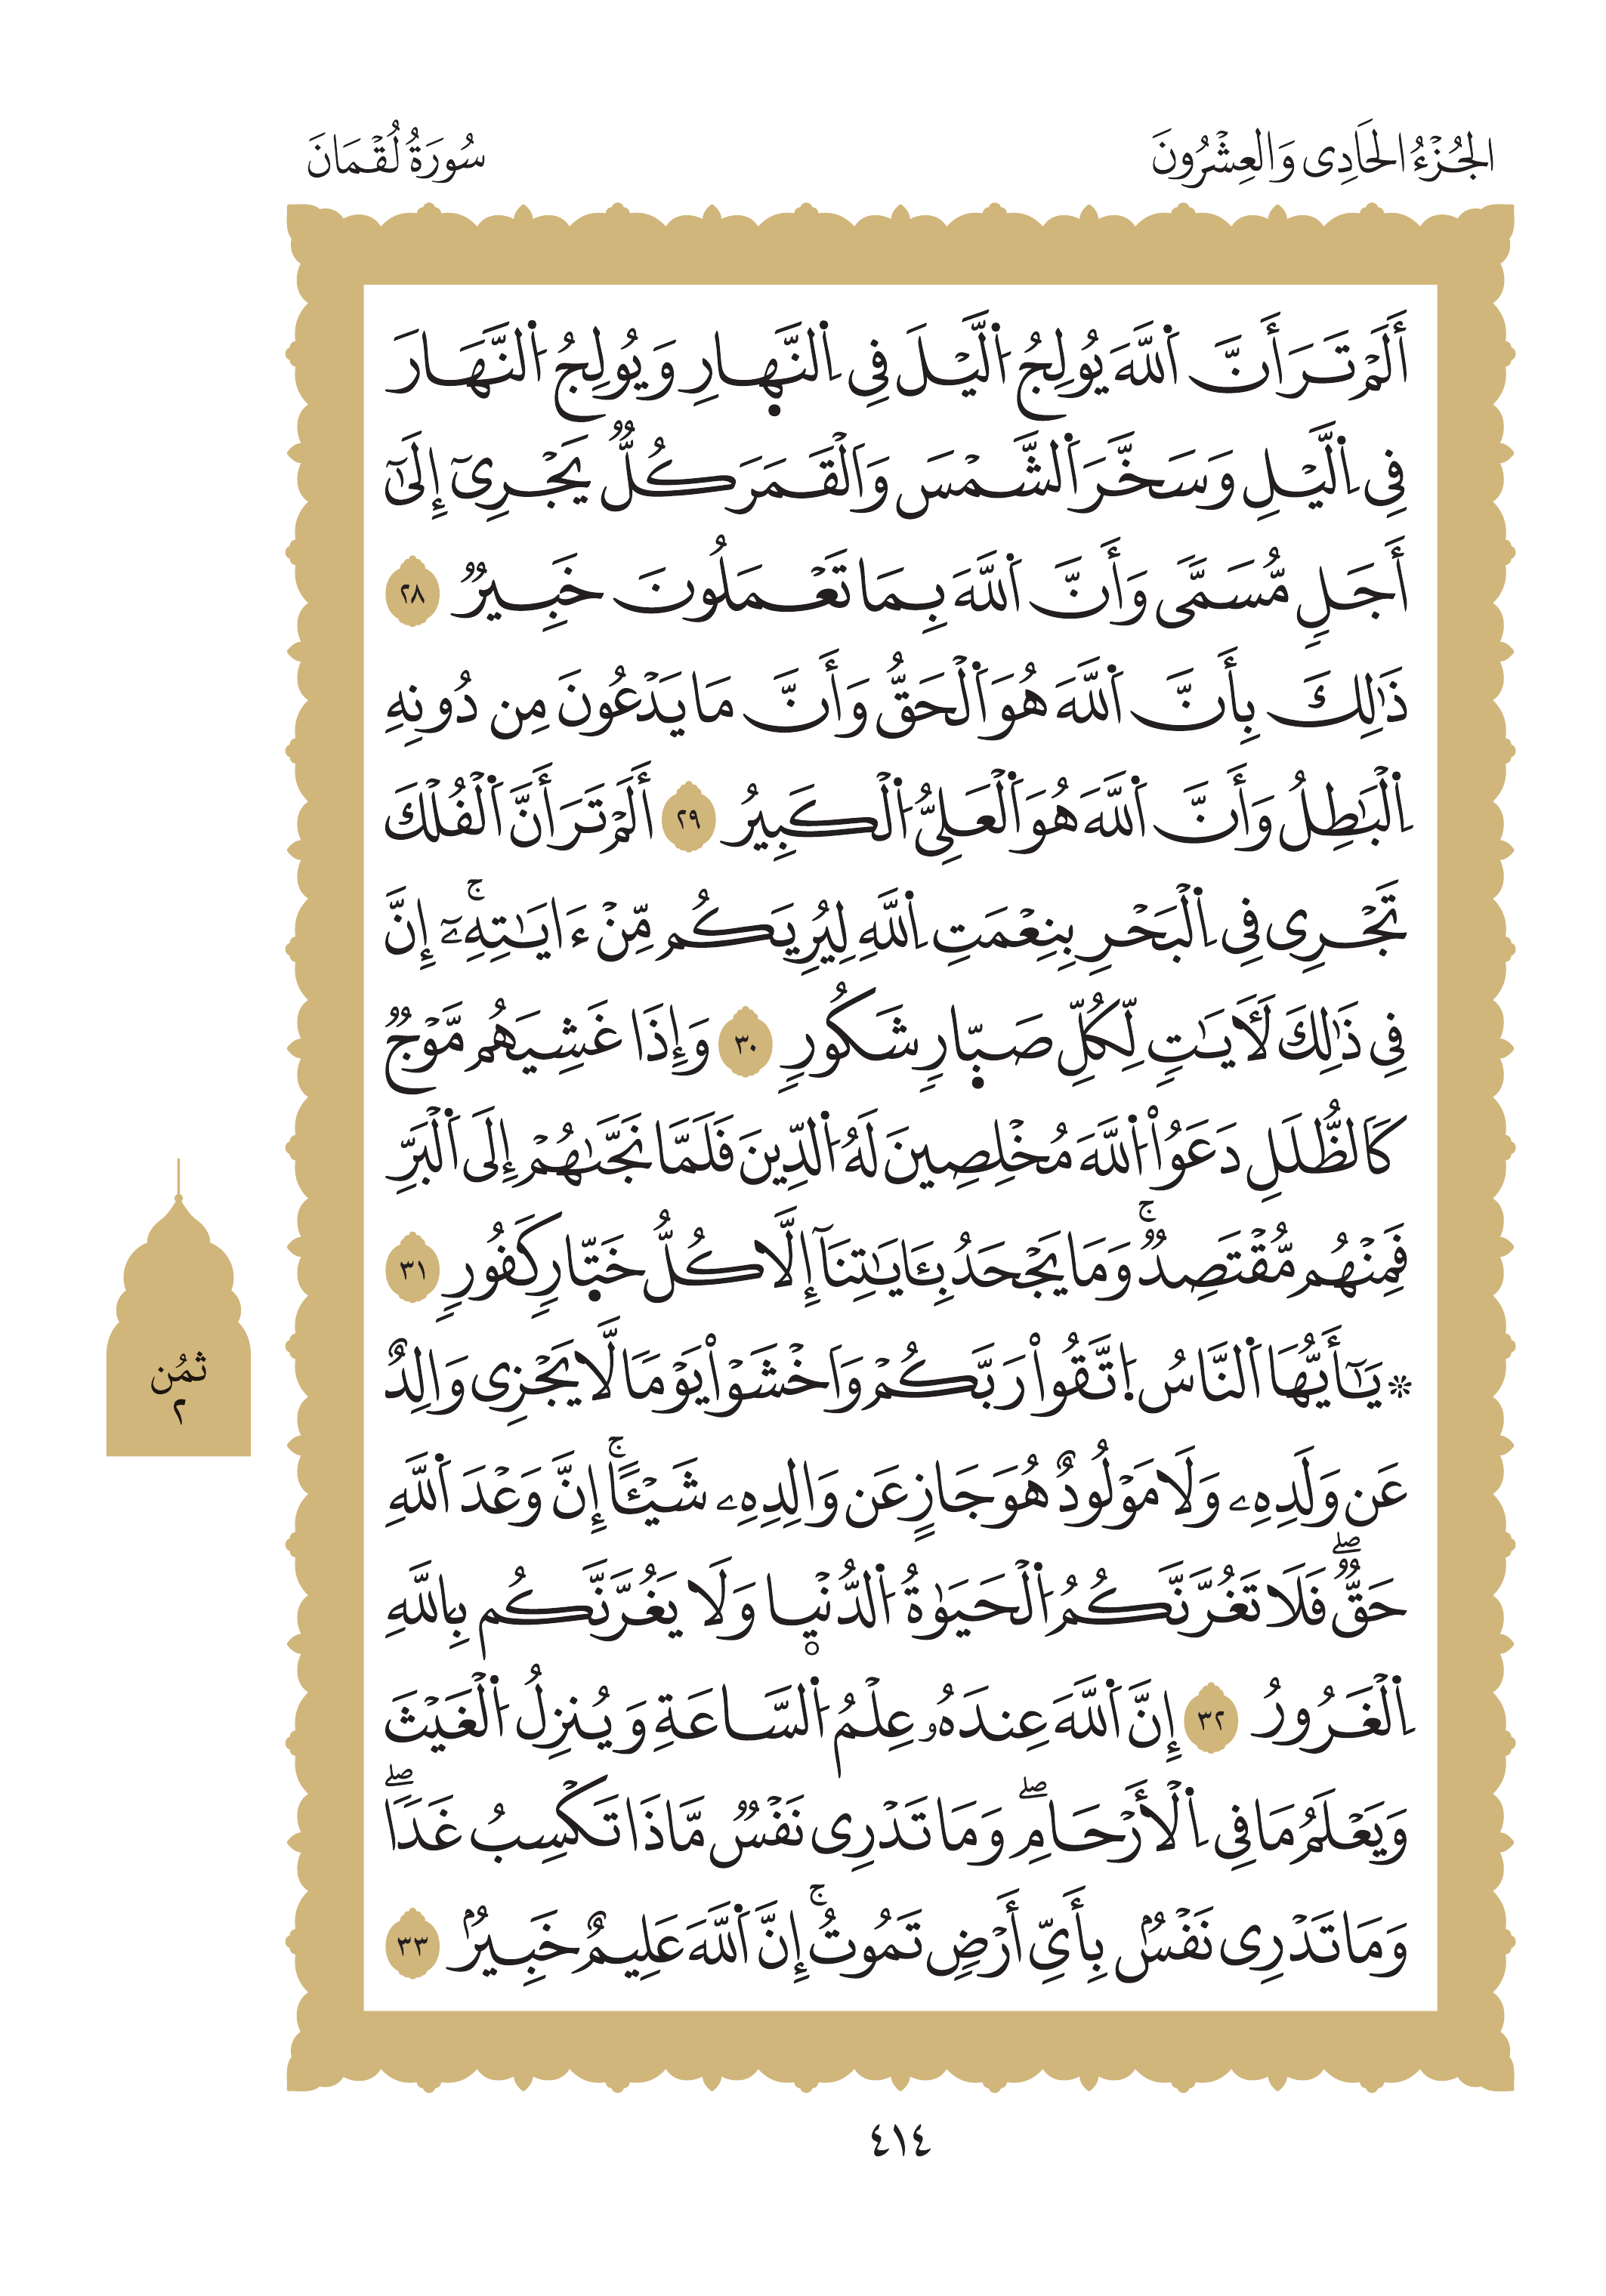 الجُزْءُ الحَادِى وَالعِشْرُونَ
سُورَةُ لُقْمَانَ
أَلَمْ تَرَ أَنَّ اَ۬للَّهَ يُولِجُ اُ۬لَّيْلَ فِى اِ۬لنَّهٜارِ وَيُولِجُ اُ۬لنَّهَارَ
فِى اِ۬لَّيْلِ وَسَخَّرَ اَ۬لشَّمْسَ وَاَلْقَمَرَ كُلٌّ يَجْرِىٓ إِلَىٰٓ
أَجَلٍ مُّسَمًّى وَأَنَّ اَ۬للَّهَ بِمَا تَعْمَلُونَ خَبِيرٌ ٢٨
ذَٰلِكَ بِأَنَّ اَ۬للَّهَ هُوَ اَ۬لْحَقُّ وَأَنَّ مَا يَدْعُونَ مِن دُونِهِ
اِ۬لْبَٰطِلُ وَأَنَّ اَ۬للَّهَ هُوَ اَ۬لْعَلِىُّ اُ۬لْكَبِيرُ ٢٩ أَلَمْ تَرَ أَنَّ اَ۬لْفُلْكَ
تَجْرِى فِى اِ۬لْبَحْرِ بِنِعْمَتِ اِ۬للَّهِ لِيُرِيَكُم مِّنْ ءَايَٰتِهِۦٓۚ إِنَّ
فِى ذَٰلِكَ لَأٓيَٰتٍ لِّكُلِّ صَبّٜارٍ شَكُورٍ ٣٠ وَإِذَا غَشِيَهُم مَّوْجٌ
كَاَلظُّلَلِ دَعَوُاْ اُ۬للَّهَ مُخْلِصِينَ لَهُ اُ۬لدِّينَ فَلَمَّا نَجَّىٰهُمْ إِلَى اَ۬لْبَرِّ
فَمِنْهُم مُّقْتَصِدٌۚ وَمَا يَجْحَدُ بِـَٔايَٰتِنَآ إِلَّا كُلُّ خَتّٜارٍ كَفُورٍ ٣١
۞ يَٰٓأَيُّهَا اَ۬لنَّاسُ اُ۪تَّقُواْ رَبَّكُمْ وَاَخْشَوْاْ يَوْمًا لَّا يَجْزِى وَالِدٌ
عَن وَلَدِهِۦ وَلَا مَوْلُودٌ هُوَ جَازٍ عَن وَالِدِهِۦ شَيْـًٔاۚ إِنَّ وَعْدَ اَ۬للَّهِ
حَقٌّۖ فَلَا تَغُرَّنَّكُمُ اُ۬لْحَيَوٰةُ اُ۬لدُّنْيٜا وَلَا يَغُرَّنَّكُم بِاللَّهِ
اِ۬لْغَرُورُ ٣٢ إِنَّ اَ۬للَّهَ عِندَهُۥ عِلْمُ اُ۬لسَّاعَةِ وَيُنزِلُ اُ۬لْغَيْثَ
وَيَعْلَمُ مَا فِى اِ۬لْأَرْحَامِۖ وَمَا تَدْرِى نَفْسٌ مَّاذَا تَكْسِبُ غَدًاۖ
وَمَا تَدْرِى نَفْسٌۢ بِأَىِّ أَرْضٍ تَمُوتُۚ إِنَّ اَ۬للَّهَ عَلِيمٌ خَبِيرٌۢ ٣٣
ثُمُن
٢
٤١٤